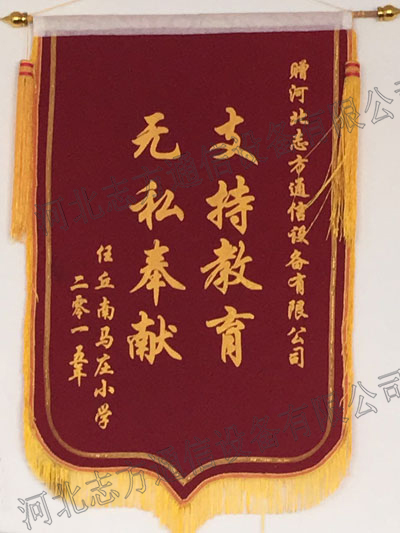 赠河北志方通信设备有限公司
支持教育
无私奉献
任丘南马庄小学
二零一五年
河北志方通信设备有限公司
河北志方通信设备有限公司